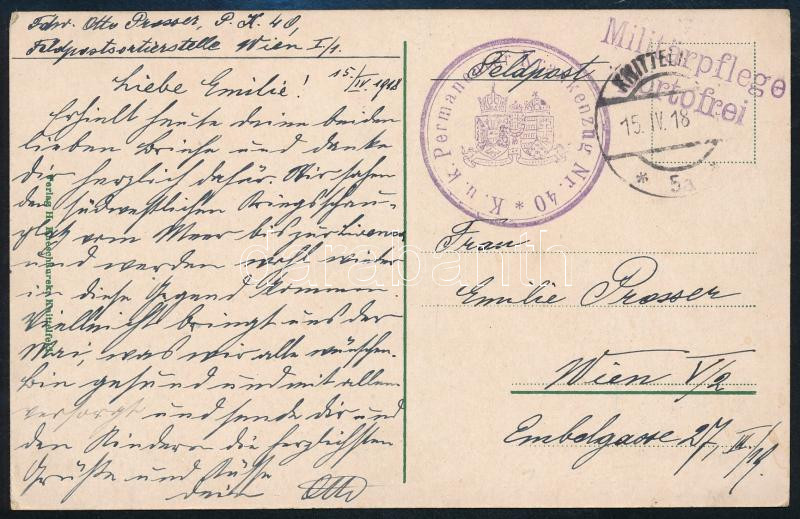 Fhr. Otto Prosser, P. K. 40,
Feldpostsortierstelle Wien I/1.
15/IV 1918
Liebe Emilie!
Erhielt heute deine beiden
lieben Briefe und danke
dir herzlich dafür. Wir sahen
den südwestlichen Kriegsschau-
platz vom Meer bis zur
und werden wohl wieder
in diese Gegend kommen.
Vielleicht bringt uns der
Mai, was wir alle wünschen.
Bin gesund und mit allem
versorgt und sende dir und
den Kindern die herzlichsten
Grüße und Küsse
dein Otto
Verlag H. Knittelfeld
Feldpost
K. u. k. Permanenter Krankenzug Nr. 40 *
Militärpflege
Portofrei
KNITTELF
15. IV. 18
* 5a *
Frau
Emilie Prosser
Wien V/2
Embelgasse 27, III/19.
darabanth